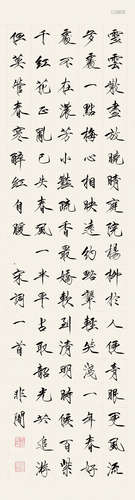 雪雲散盡放曉晴庭院楊柳於人便青眼更風流
多處一點梅心相映遠約略顰輕笑淺一年春好
處不在濃芳小艷疏香最嬌軟到清明時候百紫
千紅花正亂已失春風一半早占取韶光共追游
但莫管春寒醉紅自暖 宋詞一首 非闇